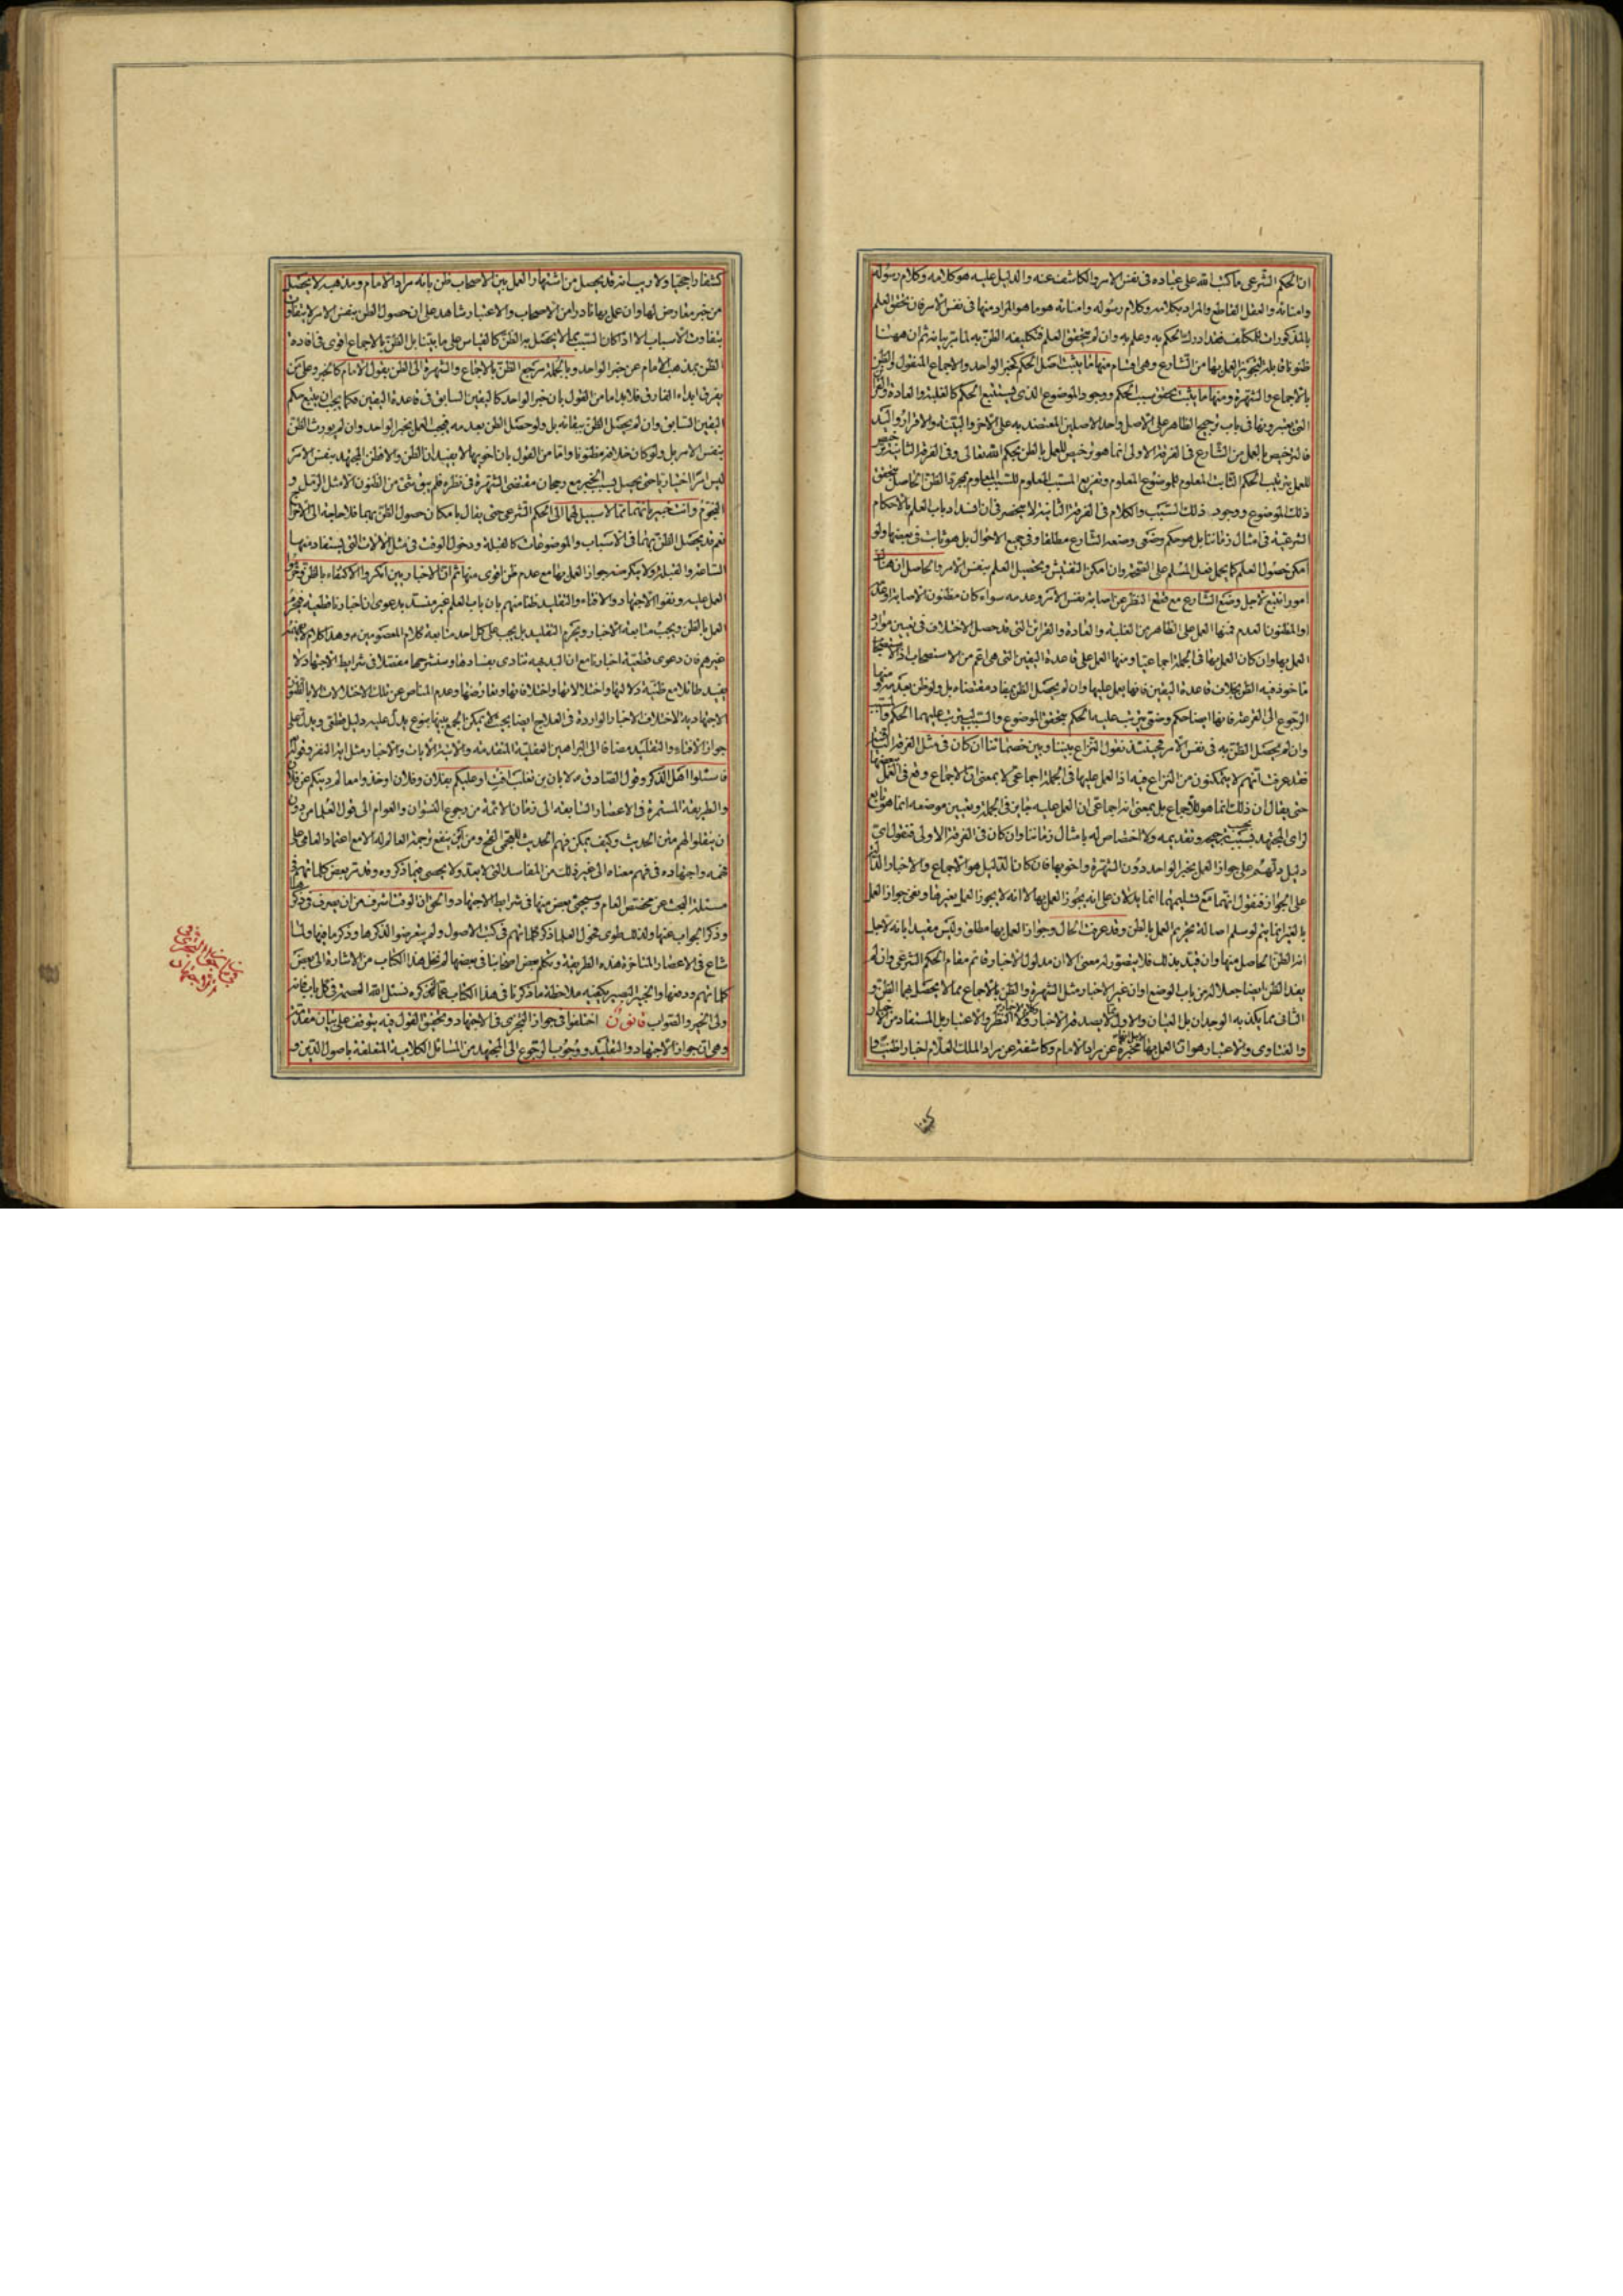 ان الحكم الشرعى ما كتب الله على عباده فى نفس الامر والكاشف عنه والدليل عليه هو كلامه وكلام رسوله
وامنائه والعقل القاطع والمراد بكلامه وكلام رسوله وامنائه هو ما هو المراد منها فى نفس الامر فان تحقق العلم
بالمذكورات للمكلف فقد ادرك الحكم به وعلم به وان لم يتحقق العلم فتكليفه الظن به لما مر بيانه ثم ان ههنا
ظنونا قابله العمل بها من الشارع وهى اقسام منها ما يثبت اصل الحكم كخبر الواحد والاجماع المنقول والظن
بالاجماع والشهرة ومنها ما يثبت تحقق سبب الحكم ووجود الموضوع الذى يستتبع الحكم كالغلبة والعادة
التى يعتبرونها فى باب ترجيح الظاهر على الاصل واحد الاصلين المعتضد به على الاخر والبينة والاقرار واليد
فالترخيص بالعمل من الشارع فى الفرقة الاولى انما هو ترخيص للعمل بالظن بحكم الله تعالى وفى الفرقة الثانية
للعمل بترتيب الحكم الثابت المعلوم للموضوع المعلوم وتفريع المسبب المعلوم للسبب المعلوم بمجرد الظن الحاصل بتحقق
ذلك الموضوع ووجود ذلك السبب والكلام فى الفرقة الثانية لا ينحصر فى ان انسداد باب العلم بالاحكام
الشرعية فى امثال زماننا بل هو حكم وضعى وضعه الشارع مطلقا وفى جميع الاحوال بل هو ثابت فى بعضها ولو
امكن حصول العلم كما يحمل فعل المسلم على الصحة وان امكن التفتيش وتحصيل العلم بنفس الامر والحاصل ان هنا
امورا تتبع لاجل وضع الشارع مع قطع النظر عن اصابة نفس الامر وعدمه سواء كان مظنون الاصابة او
او المظنون العدم فمنها العمل على الظاهر من الغلبة والعادة والقرائن التى قد حصل الاختلاف فى تعيين موارد
العمل بها وان كان العمل بها فى الجملة اجماعيا ومنها العمل على قاعدة اليقين التى هى اعم من الاستصحاب
ماخوذ فيه الظن بخلاف قاعدة اليقين فانها يعمل عليها وان لم يحصل الظن بمفاد مقتضاه بل ولو ظن بعدمه
الرجوع الى القرعة فانها ايضا حكم وضعى يترتب عليه الحكم بتحقق الموضوع والسبب يترتب عليهما الحكم
وان لم يحصل الظن به فى نفس الامر فحينئذ نقول النزاع بيننا وبين خصمائنا ان كان فى مثل الفرقة الثانية
فقد عرفت انهم لا يتمكنون من النزاع فيه اذ العمل عليها فى الجملة اجماعى لا بمعنى ان الاجماع وقع فى العمل
حتى يقال ان ذلك انما هو للاجماع بل بمعنى انه اجماعى ان العمل عليه جايز فى الجملة وتعيين موضعه انما هو تابع
لراى المجتهد بحسب ترجيحه وتقديمه ولا اختصاص له بامثال زماننا وان كان فى الفرقة الاولى فنقول اى
دليل دلهم على جواز العمل بخبر الواحد دون الشهرة واخويها فان كان الدليل هو الاجماع والاخبار
على الجواز فنقول انهما مع تسليمهما انما يدلان على انه يجوز العمل بها لا انه لا يجوز العمل بغيرها ونفى جواز العمل
بالغير انما يتم لو سلم اصالة تحريم العمل بالظن وقد عرفت الحال وجواز العمل بها مطلق وليس مقيدا بانه لاجل
انه الظن الحاصل منها وان قيد بذلك فلا يتصور له معنى الا ان مدلول الاخبار قائم مقام الحكم الشرعى وان لم
يفد الظن ايضا جعلا له من باب الوضع او ان غير الاخبار مثل الشهرة والظن بالاجماع مما لا يحصل بهما الظن و
الثانى مما يكذبه الوجدان بل العيان والاول لا يصدقه الاخبار ولا النظر والاعتبار بل المستفاد من الاخبار
والفتاوى والاعتبار هو ان العمل بها لاجل انها مخبرة عن مراد الامام وكاشفة عن مراد الملك العلام
كشفا راجحيا ولا ريب انه قد يحصل من اشتهار العمل بين الاصحاب ظن بانه مراد الامام ومذهبه لا يحصل
من خبر معارض لها وان عمل بها نادر من الاصحاب والاعتبار شاهد على ان حصول الظن بنفس الامر لا يتفاوت
بتفاوت الاسباب الا اذا كان السبب مما لا يحصل به الظن كالقياس على ما بينا بل الظن بالاجماع اقوى فى افادة
الظن بمذهب الامام عن خبر الواحد وبالجملة مرجع الظن بالاجماع والشهرة الى الظن بقول الامام كالخبر وعلى من
يفرق ابداء الفارق فلا بد اما من القول بان خبر الواحد كاليقين السابق فى قاعدة اليقين فكما يجب ان يتبع حكم
اليقين السابق وان لم يحصل الظن ببقائه بل ولو حصل الظن بعدمه فيجب العمل بخبر الواحد وان لم يورث الظن
بنفس الامر بل ولو كان خلافه مظنونا واما من القول بان اخويها لا يفيدان الظن والا فظن المجتهد بنفس الامر
ليس امرا اختياريا حتى يحصل بسبب الخبر مع رجحان مقتضى الشهرة فى نظره فلم يبق شئ من الظنون الا مثل الرمل و
النجوم وانت خبير بانهما مما لا سبيل لهما الى الحكم الشرعى حتى يقال بامكان حصول الظن بهما فلا حاجة الى
نعم قد يحصل الظن بهما فى الاسباب والموضوعات كالقبلة ودخول الوقت فى مثل الالات التى يستفاد منها
الساعة والقبلة ولا ينكر جواز العمل بها مع عدم ظن اقوى منها ثم ان الاخباريين انكروا الاكتفاء بالظن وحرموا
العمل عليه ونفوا الاجتهاد والافتاء والتقليد ظنا منهم بان باب العلم غير منسد بدعوى ان اخبارنا قطعية فيحرم
العمل بالظن ويجب متابعة الاخبار ويحرم التقليد بل يجب على كل احد متابعة كلام المعصومين وهذا كلام
غيرهم فان دعوى قطعية اخبارنا مع ان البديهة تنادى بفسادها وسنشرحها مفصلا فى شرايط الاجتهاد لا
يفيد طائلا مع ظنية دلالتها واختلالاتها واختلافاتها وتعارضها وعدم المناص عن تلك الاختلالات الا بالظنون
الاجتهادية لاختلاف الاخبار الواردة فى العلاج ايضا بحيث لا يمكن الجمع بينها بنوع يدل عليه دليل قطعى ويدل على
جواز الافتاء والتقليد مضافا الى البراهين العقلية المتقدمة والاتية الايات والاخبار مثل اية النفر وقوله تعالى
فاسئلوا اهل الذكر وقول الصادق لابان بن تغلب افت او عليكم بفلان وفلان او خذوا معالم دينكم عن فلان
والطريقة المستمرة فى الاعصار السابقة الى زمان الائمة من رجوع النسوان والعوام الى قول العلماء من دون
ان ينقلوا لهم متن الحديث وكيف يمكن فهم الحديث للعجمى القح ومن اين ينفع ترجمة العالم له الا مع اعتماد العامى على
فهمه واجتهاده فى فهم معناه الى غير ذلك من المفاسد التى لا يعد ولا يحصى فيما ذكروه وقد مر بعض كلماتهم فى
مسئلة البحث عن مخصص العام وسيجئ بعض منها فى شرايط الاجتهاد والحق ان الوقت اشرف من ان يصرف فى ذكرها
وذكر الجواب عنها ولذلك طوى فحول العلماء ذكر كلماتهم فى كتب الاصول ولم يتعرضوا لذكرها وذكر ما فيها ولما
شاع فى الاعصار المتاخرة هذه الطريقة وتكلم بعض اصحابنا فى بعضها لم نخل هذا الكتاب من الاشارة الى بعض
كلماتهم ودفعها والخبير البصير يكفيه ملاحظة ما ذكرنا فى هذا الكتاب عما لم نذكره نسئل الله العصمة فى كل باب فانه
ولى الخير والصواب قانون اختلفوا فى جواز التجزى فى الاجتهاد وتحقيق القول فيه يتوقف على بيان مقدمة
وهى ان جواز الاجتهاد والتقليد ووجوب الرجوع الى المجتهد من المسائل الكلامية المتعلقة باصول الدين و